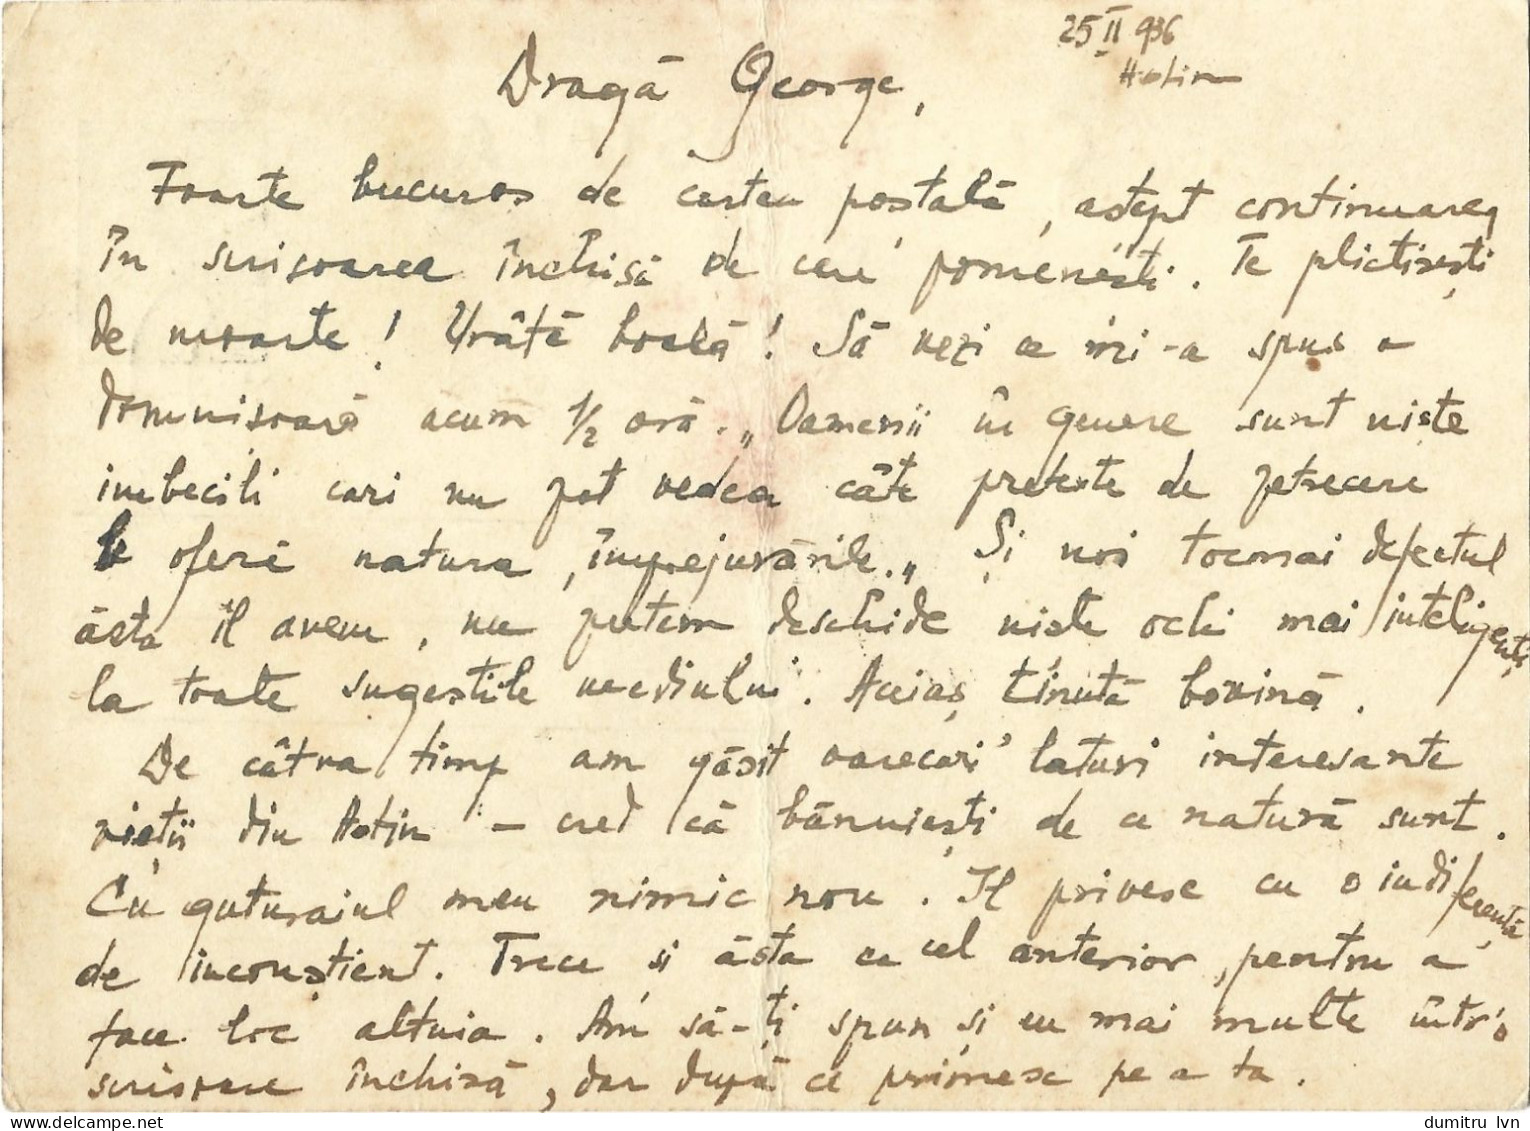 25 II 936
Hotin
Dragă George,
Foarte bucuros de cartea poștală, aștept continuarea
în scrisoarea închisă de care pomenești. Te plictisești
de moarte! Urâtă boală! Să vezi ce mi-a spus o
domnișoară acum 1/2 oră. „Oamenii în genere sunt niște
imbecili cari nu pot vedea câte pretexte de petrecere
le oferă natura, împrejurările.„ Și noi tocmai defectul
ăsta îl avem, nu putem deschide niște ochi mai inteligenți
la toate sugestiile mediului. Aceiaș ținută bovină.
De câtva timp am găsit oarecari laturi interesante
vieții din Hotin – cred că bănuiești de ce natură sunt.
Cu guturaiul meu nimic nou. Il privesc cu o indiferență
de inconștient. Trece și ăsta ca cel anterior, pentru a
face loc altuia. Am să-ți spun și eu mai multe într'o
scrisoare închisă, dar după ce primesc pe a ta.
dumitru lvn